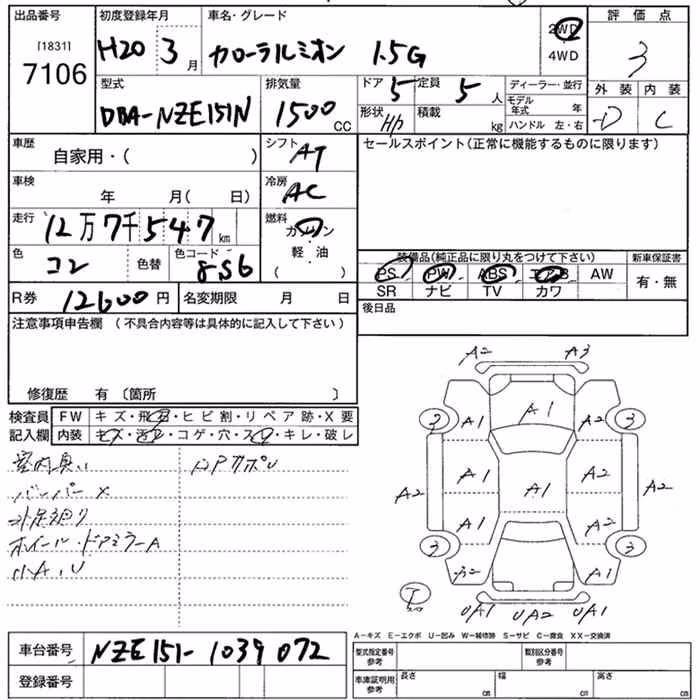 出品番号
[1831]
7106
初度登録年月
H20 3月
車名・グレード
カローラルミオン 1.5G
2WD
4WD
評価点
3
外装 内装
D C
型式
DBA-NZE151N
排気量
1500cc
ドア
5
定員
5人
形状
H/B
積載
kg
ディーラー・並行
モデル年式 年
ハンドル 左・右
車歴
自家用・( )
シフト
AT
セールスポイント(正常に機能するものに限ります)
車検
年 月( 日)
冷房
AC
走行
12万7千547km
燃料
ガソリン
軽・油
( )
色
コン
色替
色コード
8S6
装備品(純品に限り丸をつけて下さい)
新車保証書
PS PW ABS エアB AW
SR ナビ TV カワ
有・無
R券
12600円
名変期限 月 日
後日品
注意事項申告欄 (不具合内容等は具体的に記入して下さい)
修復歴 有 〔箇所 〕
検査員
記入欄
FW キズ・飛石・ヒビ割・リペア跡・X要
内装 キズ・汚レ・コゲ・穴・スレ・キレ・破レ
室内臭い
バンパーX
外足廻り
ホイール・ドアミラーA
小A.U
A2 A3
3 A1 A1 A1 3
A2 A1 A1 A2 A2
A1 A2
3 A2 A1 3
UA1 UA2 UA1
A-キズ E-エクボ U-凹み W-補修跡 S-サビ C-腐食 XX-交換済
車台番号
NZE151-1039072
登録番号
型式指定番号
参考
類別区分番号
参考
車庫証明用
参考
長さ cm
幅 cm
高さ cm